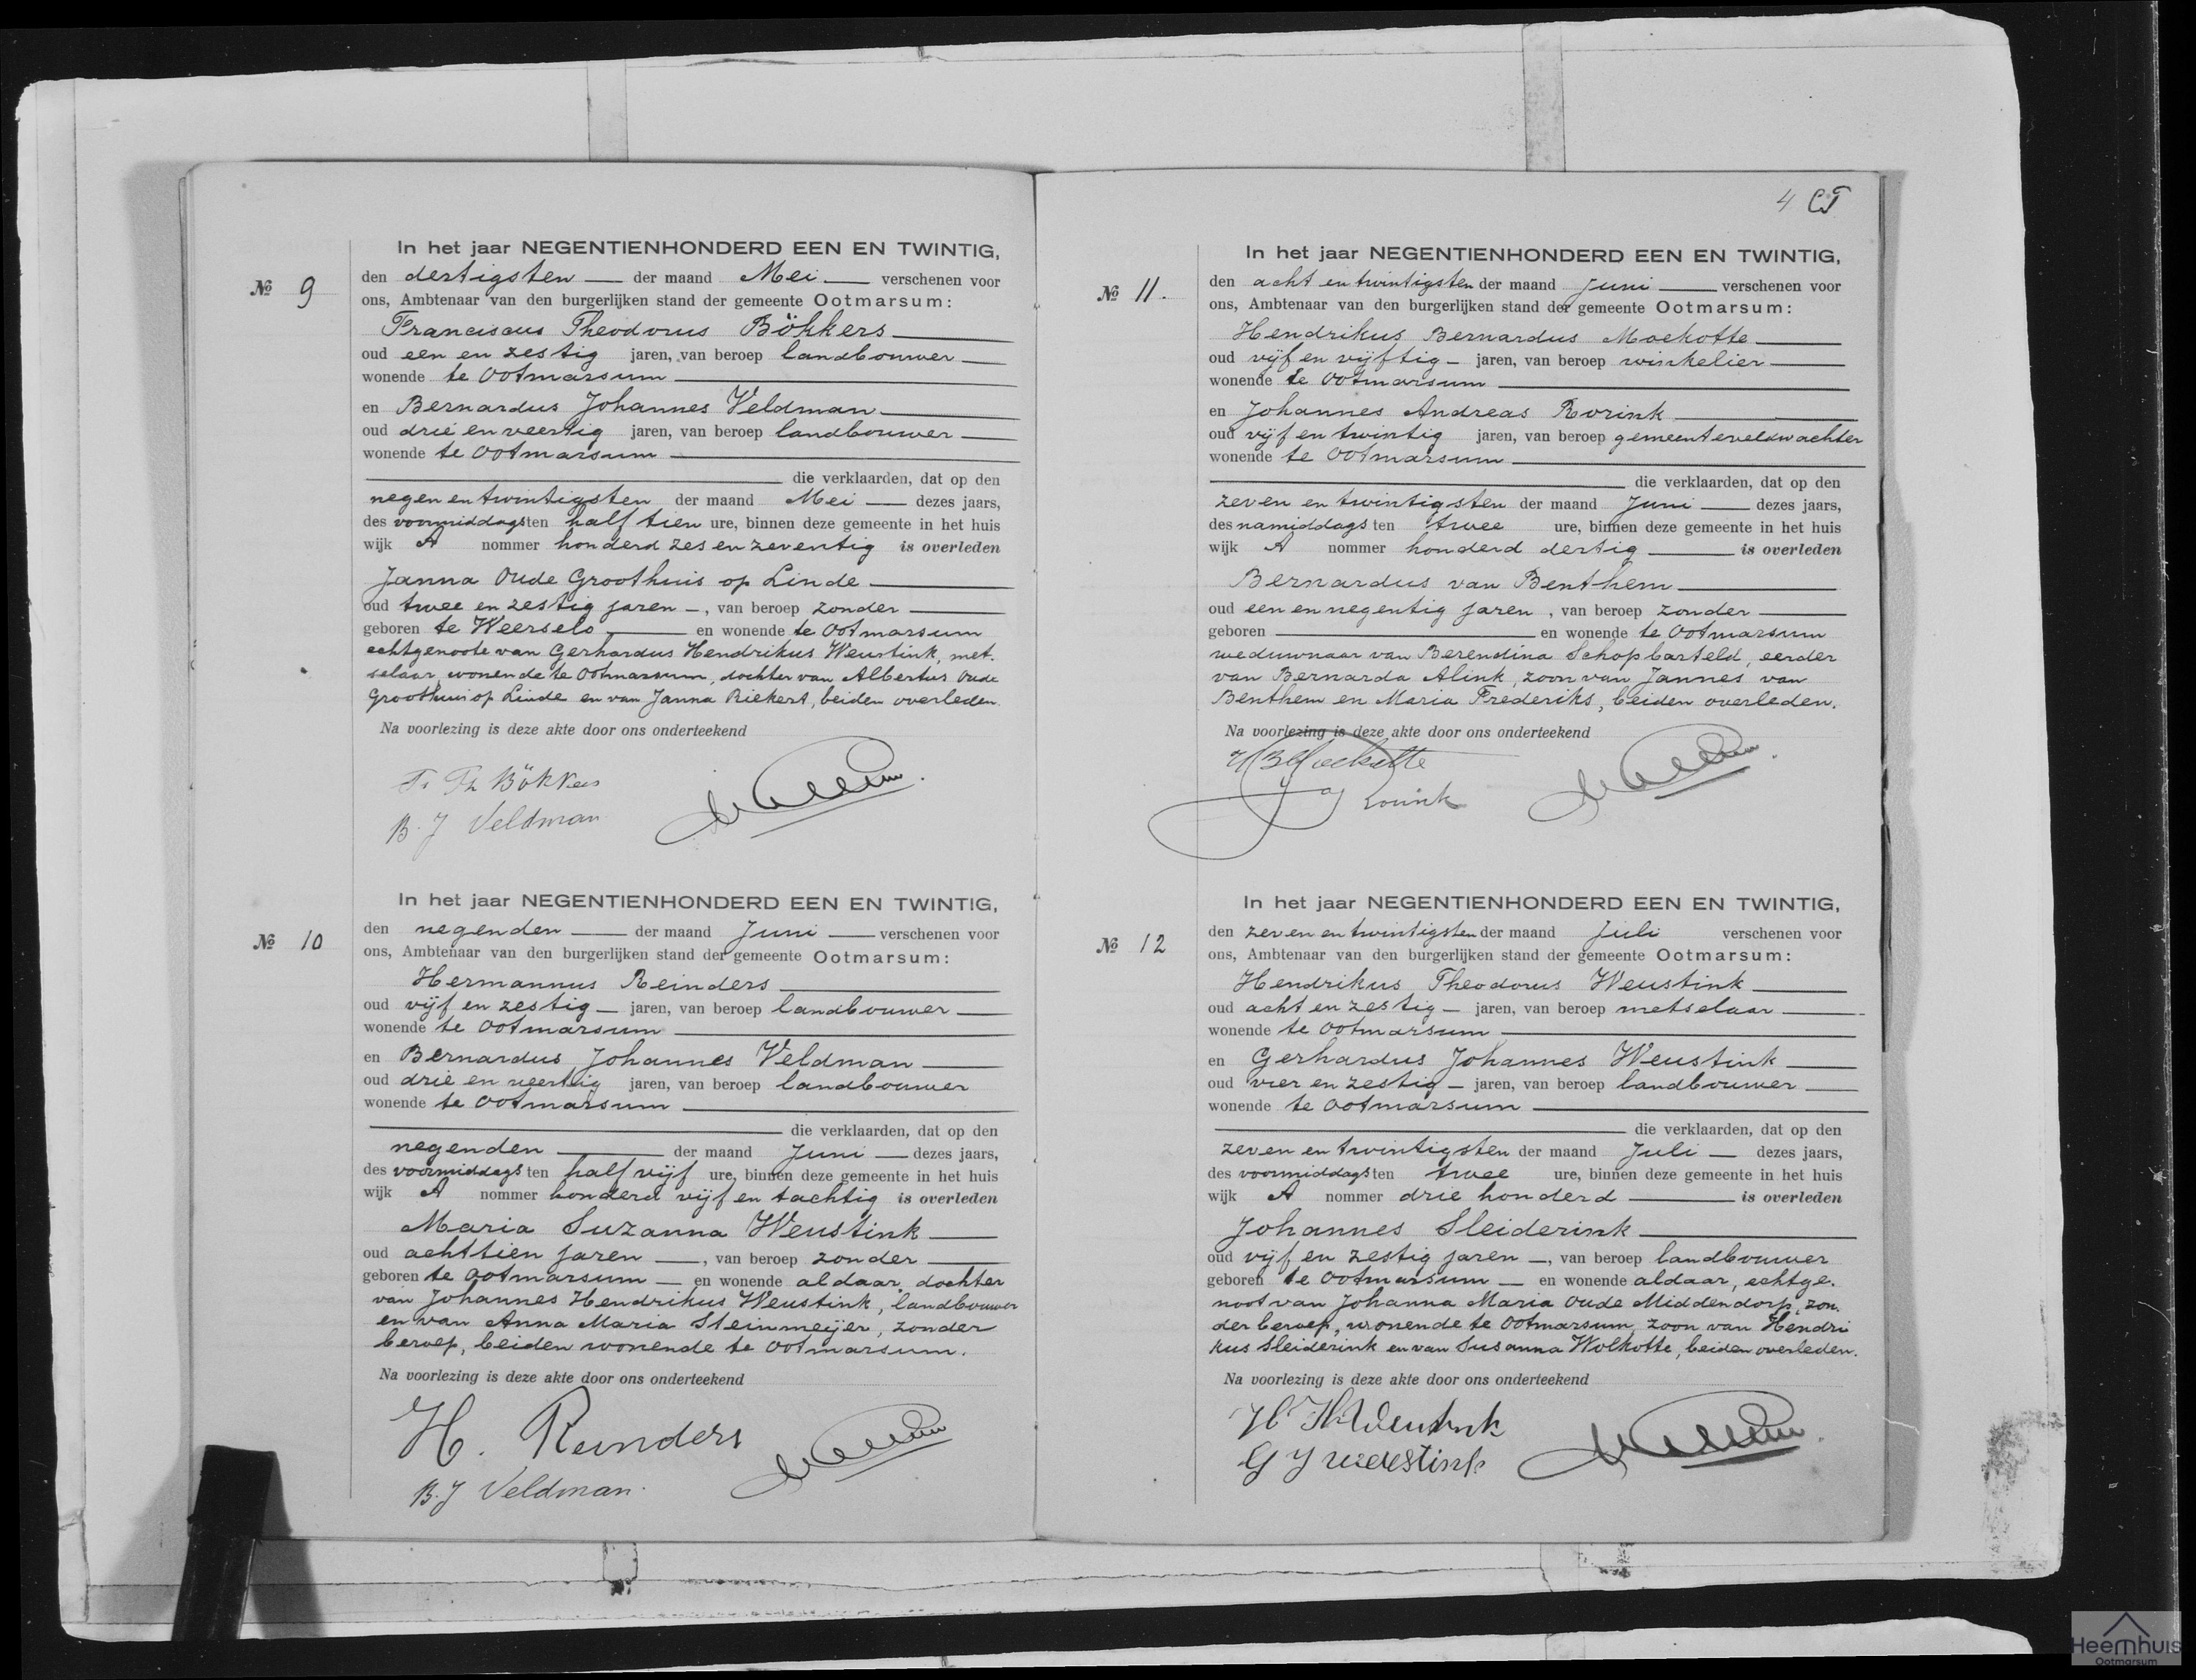 In het jaar NEGENTIENHONDERD EEN EN TWINTIG,
№ 9
den dertigsten der maand Mei verschenen voor
ons, Ambtenaar van den burgerlijken stand der gemeente Ootmarsum:
Franciscus Theodorus Bökkers
oud een en zestig jaren, van beroep landbouwer
wonende te Ootmarsum
en Bernardus Johannes Veldman
oud drie en veertig jaren, van beroep landbouwer
wonende te Ootmarsum
die verklaarden, dat op den
negen en twintigsten der maand Mei dezes jaars,
des voormiddags ten half tien ure, binnen deze gemeente in het huis
wijk A nommer honderd zes en zeventig is overleden
Janna Oude Groothuis op Linde
oud twee en zestig jaren, van beroep zonder
geboren te Weerselo en wonende te Ootmarsum
echtgenoote van Gerhardus Hendrikus Weustink, met-
selaar, wonende te Ootmarsum, dochter van Albertus Oude
Groothuis op Linde en van Janna Riekert, beiden overleden.
Na voorlezing is deze akte door ons onderteekend
Fr Th Bökkers
B. J Veldman
In het jaar NEGENTIENHONDERD EEN EN TWINTIG,
№ 10
den negenden der maand Juni verschenen voor
ons, Ambtenaar van den burgerlijken stand der gemeente Ootmarsum:
Hermannus Reinders
oud vijf en zestig jaren, van beroep landbouwer
wonende te Ootmarsum
en Bernardus Johannes Veldman
oud drie en veertig jaren, van beroep landbouwer
wonende te Ootmarsum
die verklaarden, dat op den
negenden der maand Juni dezes jaars,
des voormiddags ten half vijf ure, binnen deze gemeente in het huis
wijk A nommer honderd vijf en tachtig is overleden
Maria Suzanna Weustink
oud achttien jaren, van beroep zonder
geboren te Ootmarsum en wonende aldaar, dochter
van Johannes Hendrikus Weustink, landbouwer
en van Anna Maria Steinmeijer, zonder
beroep, beiden wonende te Ootmarsum.
Na voorlezing is deze akte door ons onderteekend
H. Reinders
B. J Veldman.
4
In het jaar NEGENTIENHONDERD EEN EN TWINTIG,
№ 11.
den acht en twintigsten der maand Juni verschenen voor
ons, Ambtenaar van den burgerlijken stand der gemeente Ootmarsum:
Hendrikus Bernardus Moekotte
oud vijf en vijftig jaren, van beroep winkelier
wonende te Ootmarsum
en Johannes Andreas Rorink
oud vijf en twintig jaren, van beroep gemeenteveldwachter
wonende te Ootmarsum
die verklaarden, dat op den
zeven en twintigsten der maand Juni dezes jaars,
des namiddags ten twee ure, binnen deze gemeente in het huis
wijk A nommer honderd dertig is overleden
Bernardus van Benthem
oud een en negentig jaren, van beroep zonder
geboren en wonende te Ootmarsum
weduwnaar van Berendina Schopbarteld, eerder
van Bernarda Alink, zoon van Jannes van
Benthem en Maria Frederiks, beiden overleden.
Na voorlezing is deze akte door ons onderteekend
HBMoekotte
In het jaar NEGENTIENHONDERD EEN EN TWINTIG,
№ 12
den zeven en twintigsten der maand Juli verschenen voor
ons, Ambtenaar van den burgerlijken stand der gemeente Ootmarsum:
Hendrikus Theodorus Weustink
oud acht en zestig jaren, van beroep metselaar
wonende te Ootmarsum
en Gerhardus Johannes Weustink
oud vier en zestig jaren, van beroep landbouwer
wonende te Ootmarsum
die verklaarden, dat op den
zeven en twintigsten der maand Juli dezes jaars,
des voormiddags ten twee ure, binnen deze gemeente in het huis
wijk A nommer drie honderd is overleden
Johannes Sleiderink
oud vijf en zestig jaren, van beroep landbouwer
geboren te Ootmarsum en wonende aldaar, echtge-
noot van Johanna Maria Oude Middendorp, zon-
der beroep, wonende te Ootmarsum, zoon van Hendri
kus Sleiderink en van Susanna Wolkotte, beiden overleden.
Na voorlezing is deze akte door ons onderteekend
H Th Weustink
G J Weustink
Heemhuis
Ootmarsum